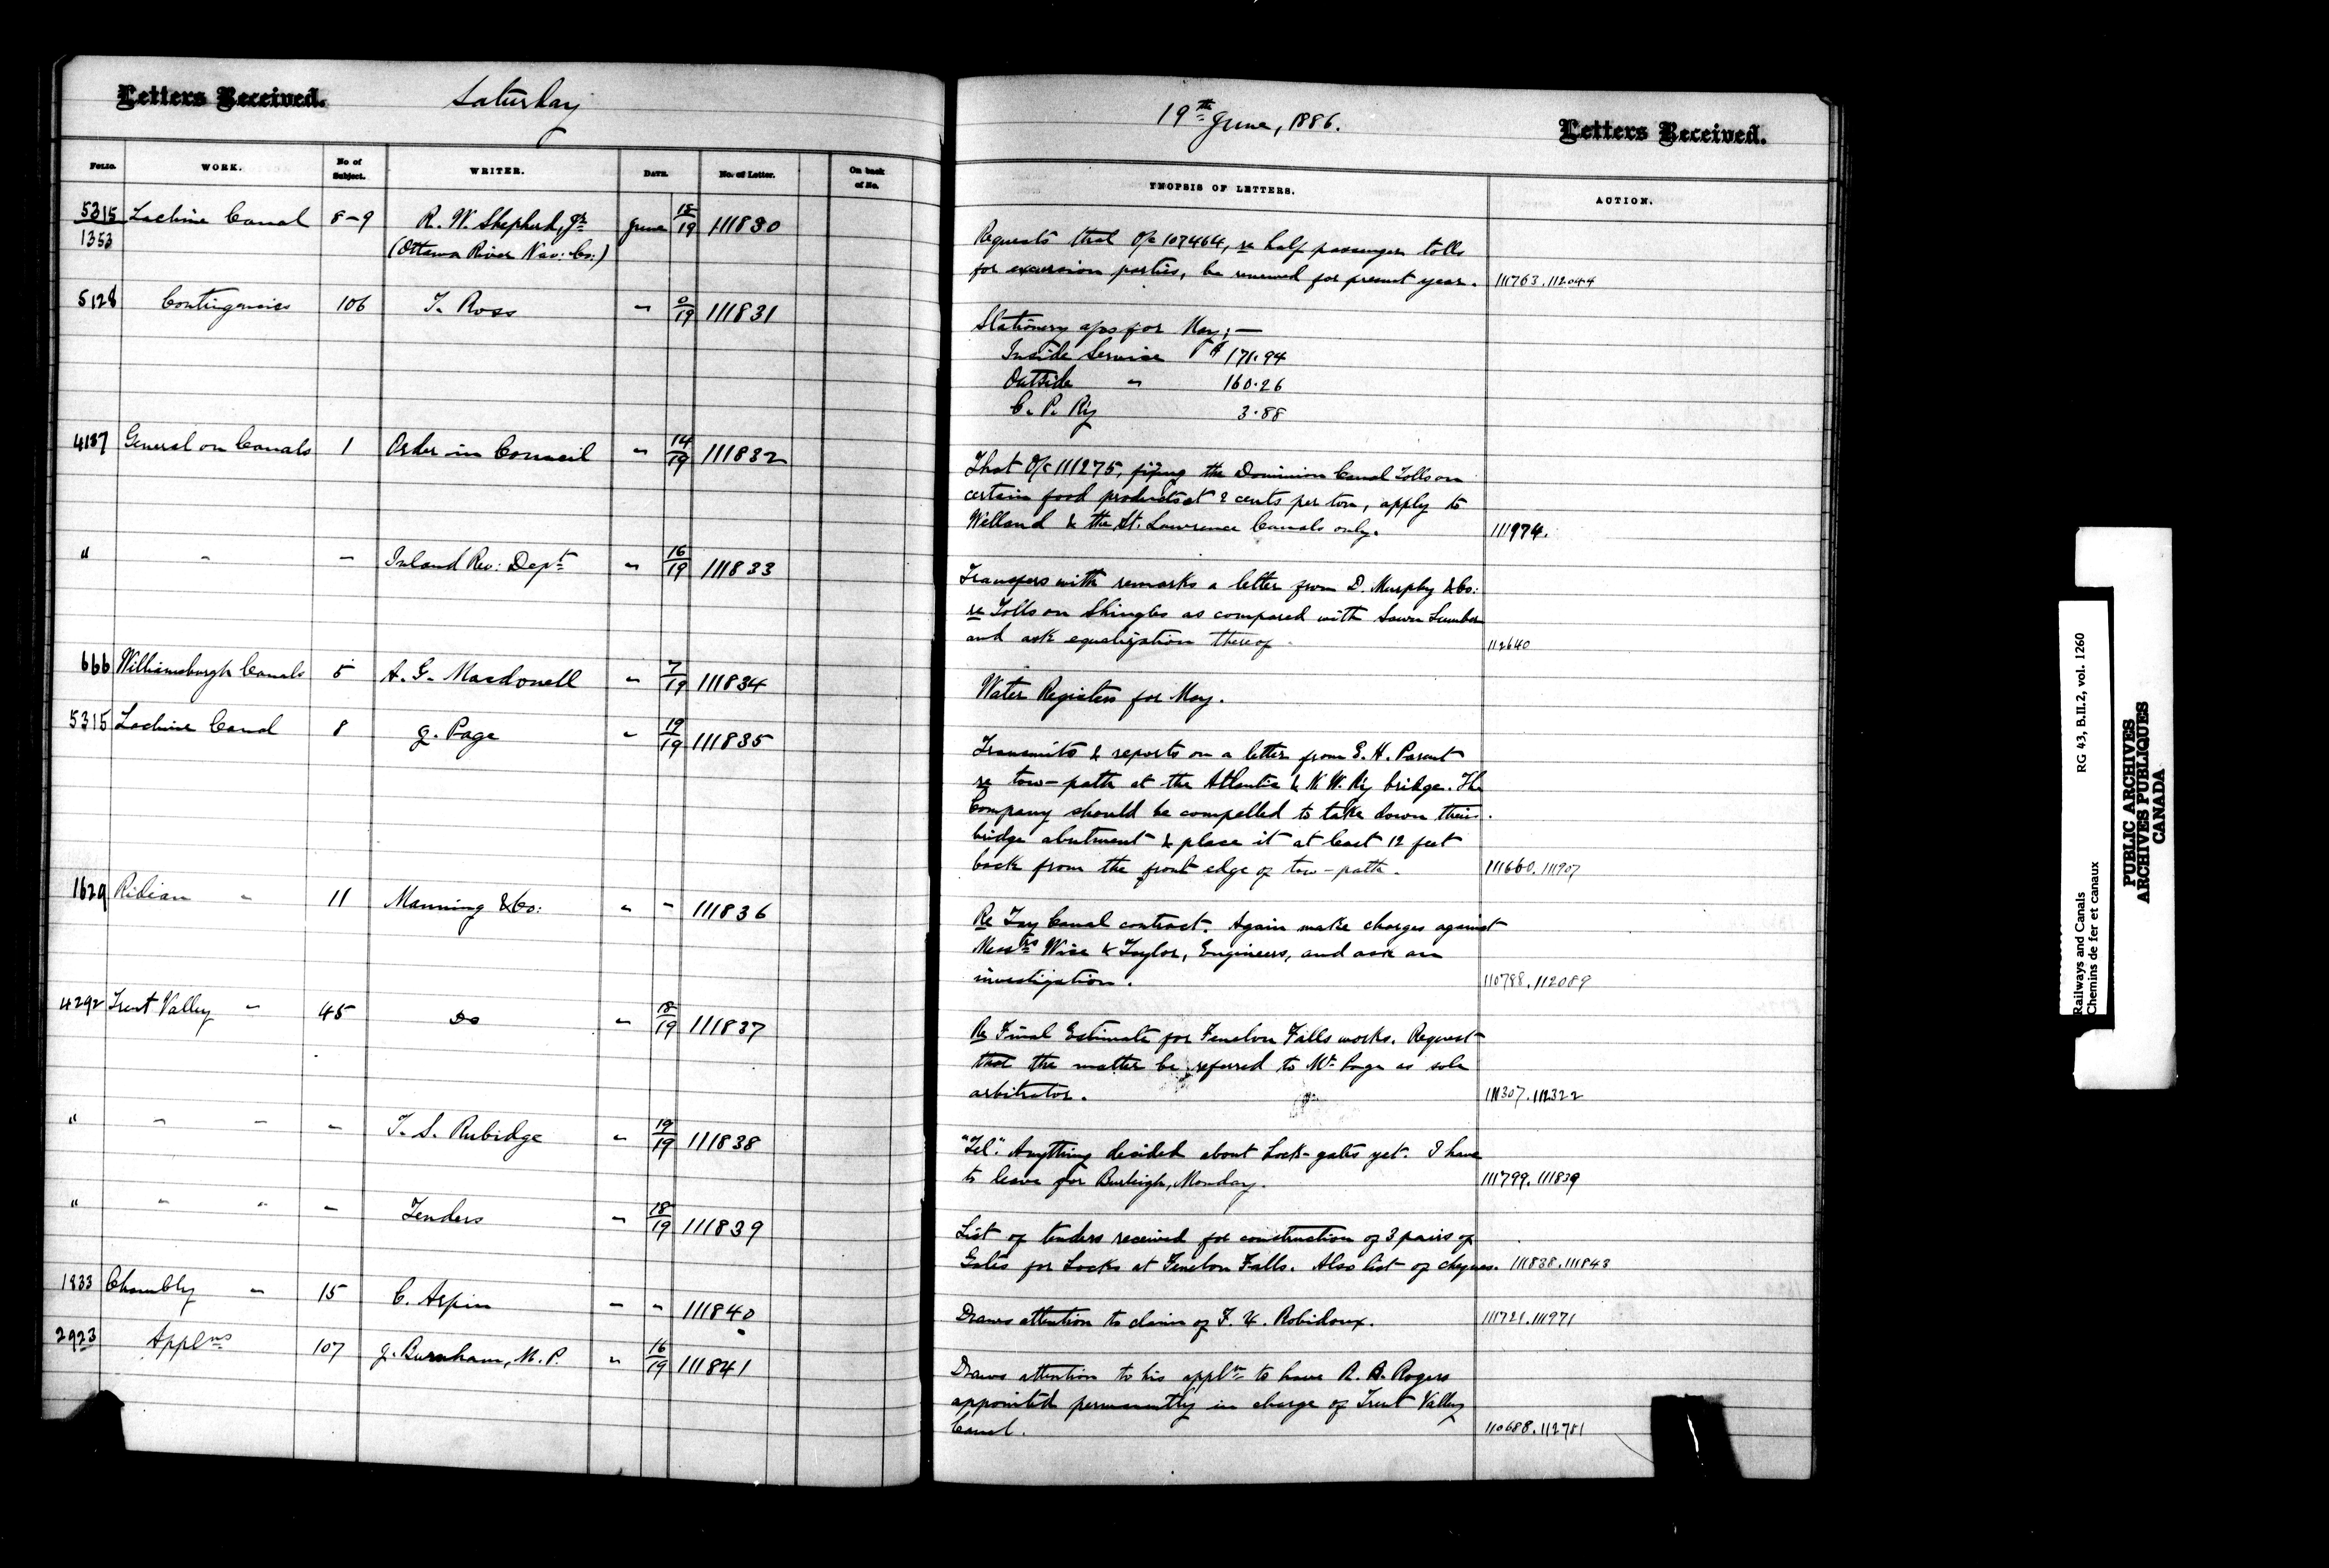 Letters Received.
Saturday
FOLIO. WORK. No of Subject. WRITER. DATE. No. of Letter. On back of No.
5315 Lachine Canal 8-9 R. W. Shepherd, Jr June 18/19 111830
1353 (Ottawa River Nav: Co:)
5128 Contingencies 106 T. Ross " 0/19 111831
4137 General on Canals 1 Order in Council " 14/19 111832
" " " Inland Rev: Dept " 16/19 111833
666 Williamsburgh Canals 5 A. G. Macdonell " 7/19 111834
5315 Lachine Canal 8 J. Page " 19/19 111835
1629 Rideau " 11 Manning & Co: " " 111836
4292 Trent Valley " 45 Do " 18/19 111837
" " " " T. S. Rubidge " 19/19 111838
" " " " Tenders " 18/19 111839
1833 Chambly " 15 C. Arpin " " 111840
2923 Applns 107 J. Burnham, M.P. " 16/19 111841
19th June, 1886.
Letters Received.
SYNOPSIS OF LETTERS. ACTION.
Requests that O/c 107464, re half passenger tolls
for excursion parties, be renewed for present year. 111763. 112044
Stationery a/cs for May:—
Inside Service $171.94
Outside " 160.26
C. P. Ry 3.88
That O/c 111275, fixing the Dominion Canal Tolls on
certain food products at 2 cents per ton, apply to
Welland & the St. Lawrence Canals only. 111974.
Transfers with remarks a letter from D. Murphy & Co:
re Tolls on Shingles as compared with Sawn Lumber
and ask equalization thereof. 112640
Water Registers for May.
Transmits & reports on a letter from E. H. Parent
re tow-path at the Atlantic & N. W. Ry bridge. The
Company should be compelled to take down their
bridge abutment & place it at least 12 feet
back from the front edge of tow-path. 111660. 111907
Re Tay Canal contract. Again make charges against
Messrs Wise & Taylor, Engineers, and ask an
investigation. 110788. 112089
Re Final Estimate for Fenelon Falls works. Request
that the matter be referred to Mr Page as sole
arbitrator. 111307. 112322
"Tel". Anything decided about Lock-gates yet. I have
to leave for Burleigh, Monday. 111799. 111839
List of tenders received for construction of 3 pairs of
Gates for Locks at Fenelon Falls. Also list of cheques. 111838. 111843
Draws attention to claim of F. X. Robidoux. 111721. 111971
Draws attention to his appln to have R. B. Rogers
appointed permanently in charge of Trent Valley
Canal. 110688. 112781
Railways and Canals RG 43, B.II.2, vol. 1260
Chemins de fer et canaux
PUBLIC ARCHIVES
ARCHIVES PUBLIQUES
CANADA